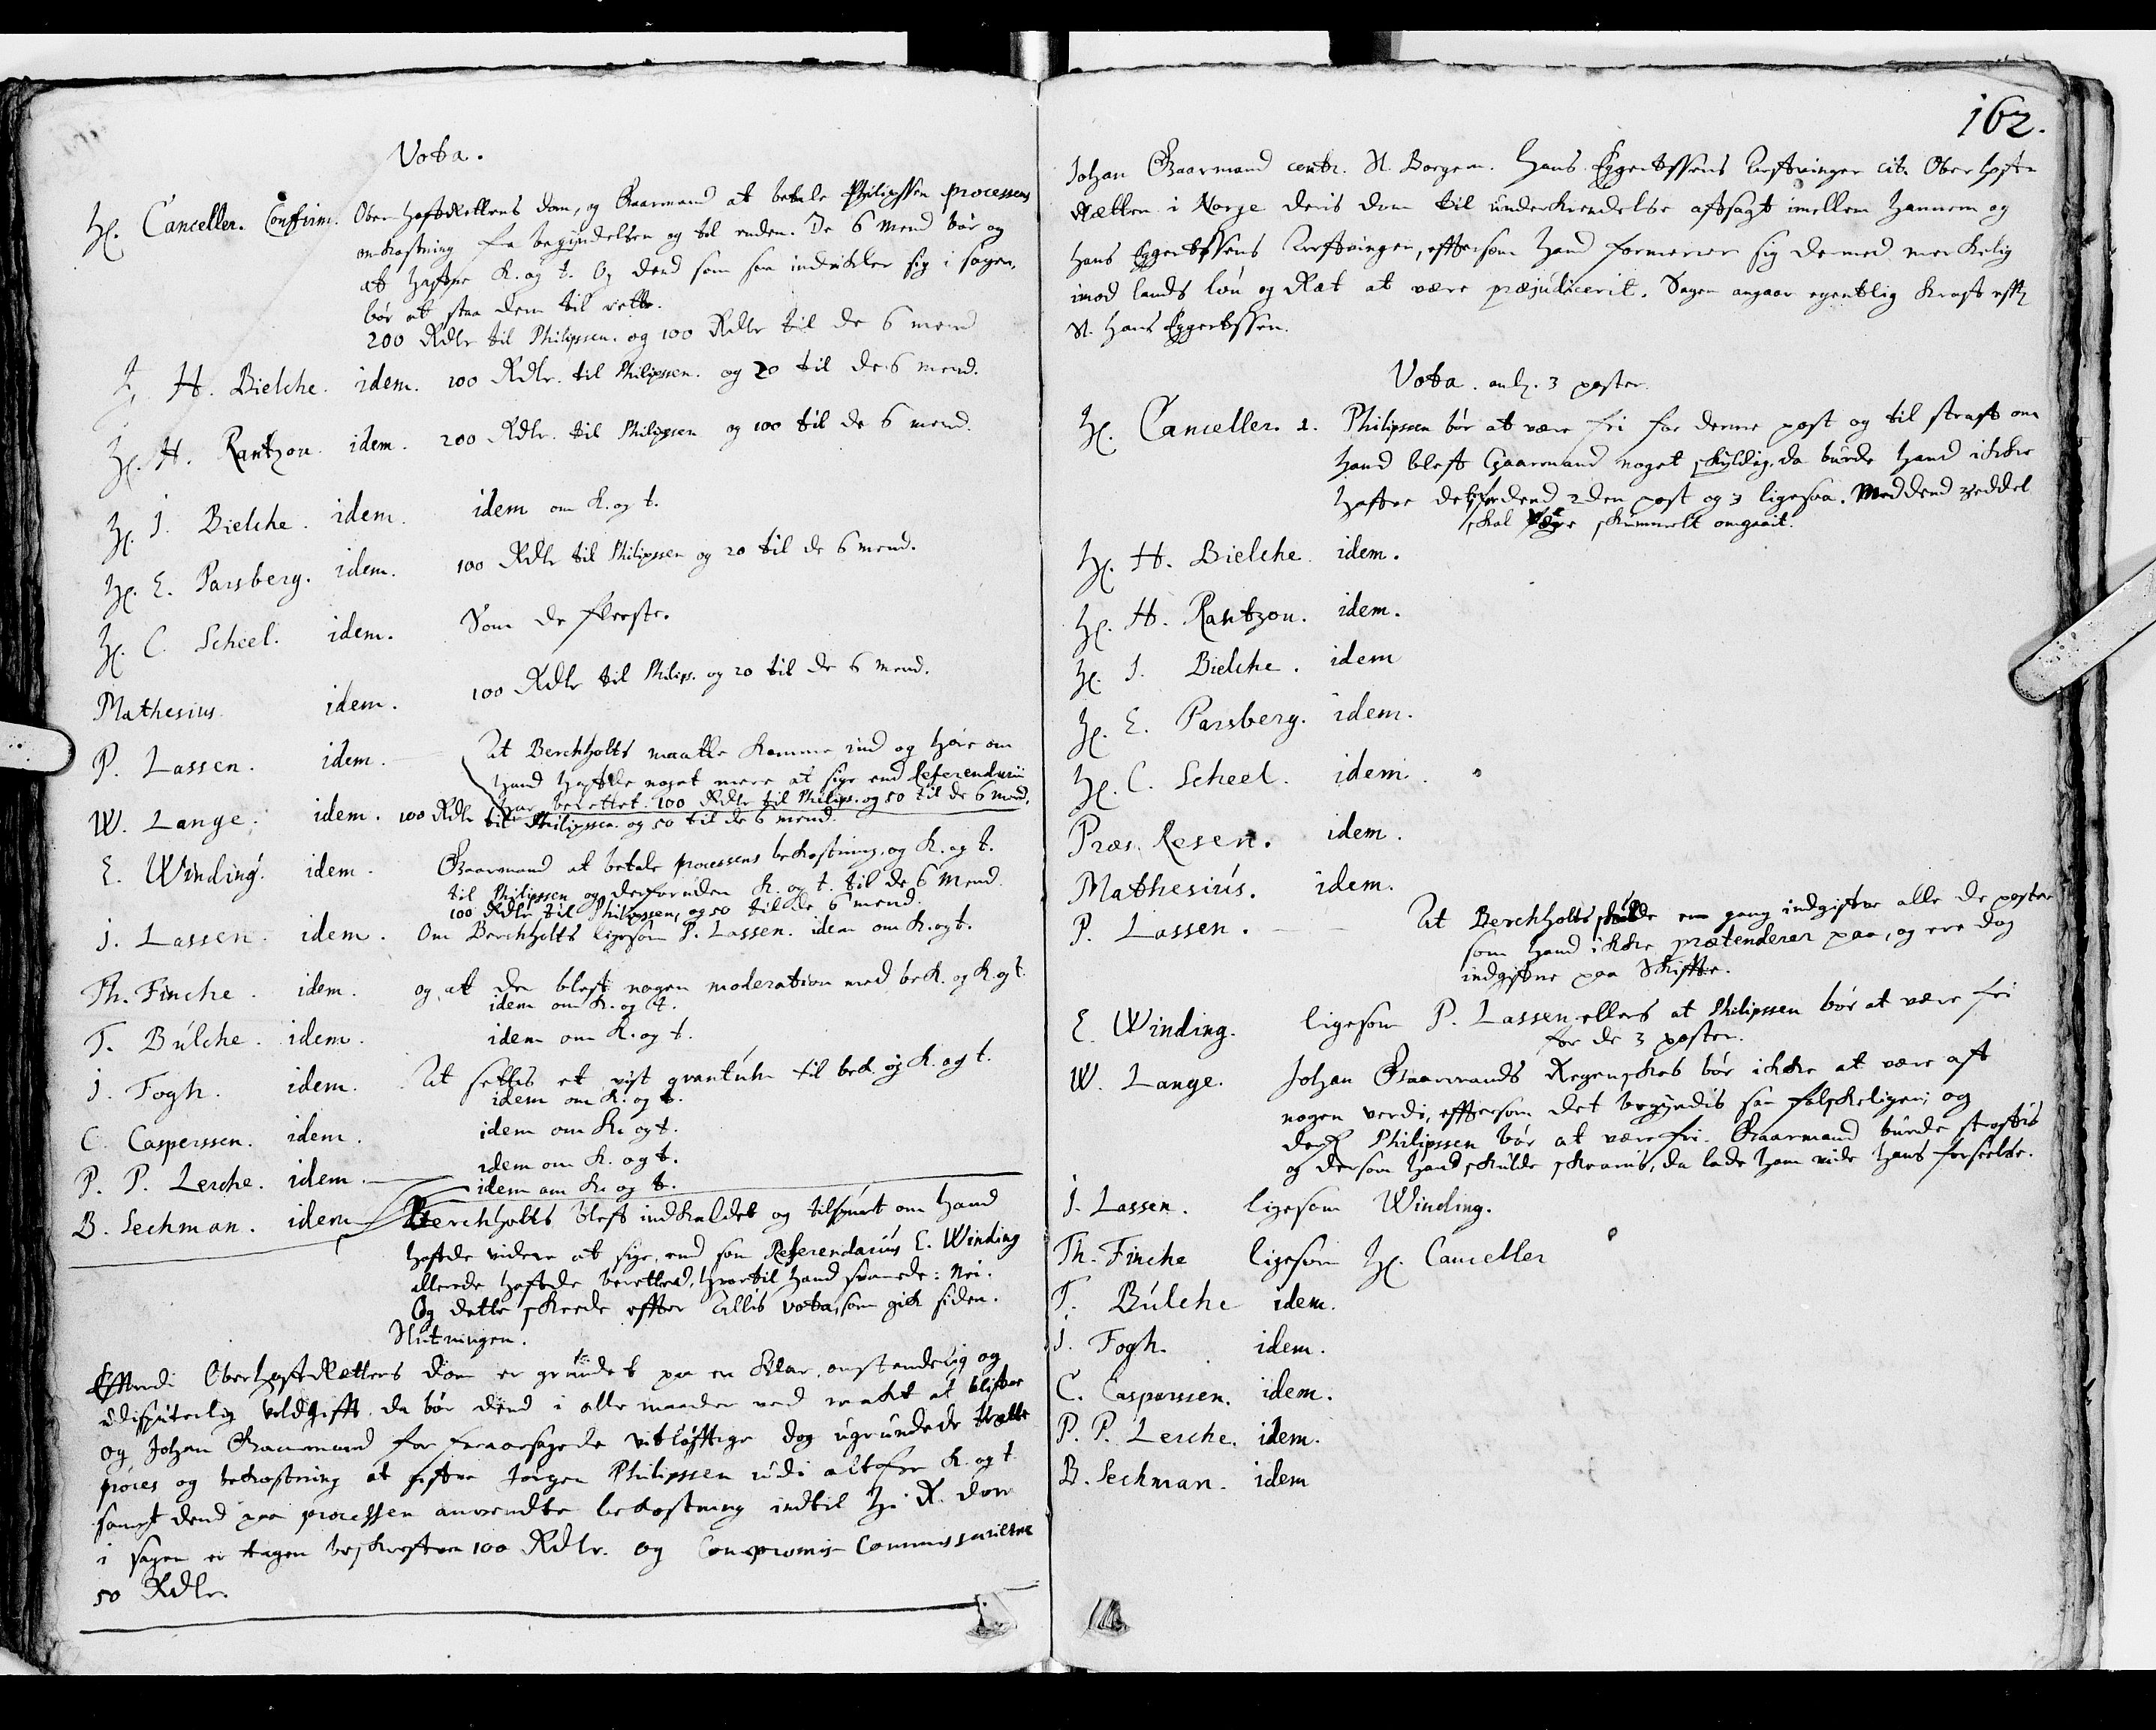 Vota.
H. Canceller. Confirm. Ober Hofrettens dom, og Gaarmand at betale Philipssen processens
omkostning fra begyndelsen og til enden. De 6 Mend bør og
at hafve K. og t. Og dend som saa indvikler sig i sagen,
bør at staa dem til rette.
200 Rdlr til Philipssen. og 100 Rdlr til de 6 mend
H. H. Bielche. idem. 100 Rdlr. til Philipssen. og 20 til de 6 mend.
H. H. Rantzou. idem. 200 Rdlr. til Philipssen og 100 til de 6 mend.
H. J. Bielche. idem. idem om K. og t.
H. E. Parsberg. idem. 100 Rdlr til Philipssen og 20 til de 6 mend.
H. C. Scheel. idem. Som de fleeste.
Mathesius idem. 100 Rdlr til Philips. og 20 til de 6 mend.
P. Lassen. idem. At Berchholts maatte komme ind og høre om
hand hafde noget mere at sige end Referendarii
har berettet. 100 Rdlr til Philips. og 50 til de 6 mend.
W. Lange. idem. 100 Rdlr til Philipssen. og 50 til de 6 mend.
E. Winding. idem. Gaarmand at betale processens bekostning, og K. og t.
til Philipssen og desforuden K. og t. til de 6 Mend.
100 Rdlr til Philipssen, og 50 til de 6 mend.
J. Lassen. idem. Om Berchholts ligesom P. Lassen. idem om K. og t.
Th. Finche. idem. og at der blef nogen moderation med bek. og K. og t.
idem om K. og t.
T. Bulche. idem. idem om K. og t.
J. Fogh. idem. At settis et vist qvantum til bek. og K. og t.
idem om K. og t.
C. Casperssen. idem. idem om K. og t.
P. P. Lerche. idem. idem om K. og t.
idem om K. og t.
B. Sechman. idem Berchholts blef indkaldet og tilspurt om hand
hafde videre at sige, end som Referendarius E. Winding
allerede hafde berettet, hvortil hand svarede: Nei.
Og dette skeede effter Allis vota, som gik siden.
Slutningen.
Efftterdi Oberhofrettens dom er grundet paa en klar, omstendelig og
udisputerlig voldgifft, da bør dend i alle maader ved magt at blifve
og Johan Gaarmand for foraarsagede vitløfftige dog ugrundede trætte
proces og bekostning at gifve Jørgen Philipssen udi alt for K. og t.
sampt dend paa processen anvendte bekostning indtil H. R. dom
i sagen er tagen beskrefven 100 Rdlr. og Compromis Commissarierne
50 Rdlr.
162.
Johan Gaarmand contr. Sl. Borgem. Hans Eggertssens Arfvinger cit. Ober Hof
Rætten i Norge deris dom til underkiendelse afsagt imellem hannem og
Hans Eggertssens Arfvinger, eftersom hand formener sig dermed merkelig
imod lands lou og Ræt at være præjudicerit. Sagen angaar egentlig
Sl. Hans Eggertssen.
Vota. anl. 3 poster.
H. Canceller. 1. Philipssen bør at være fri for denne post og til straf om
hand blef Gaarmand noget skyldig, da burde hand ikke
hafve det, for dend 2den post og 3 ligesaa. Med dend zeddel
skal være skummelt omgaait.
H. H. Bielche. idem.
H. H. Rantzou. idem.
H. J. Bielche. idem
H. E. Parsberg. idem.
H. C. Scheel. idem.
Præs. Resen. idem.
Mathesius. idem.
P. Lassen. At Berchholts skulde en gang indgifve alle de poster
som hand ikke prætenderer paa, og ere dog
indgifne paa Skifte.
E. Winding. ligesom P. Lassen, ellers at Philipssen bør at være fri
for de 3 poster.
W. Lange. Johan Gaarmands Regenskab bør ikke at være af
nogen verdi, eftersom det begyndis saa falskeligen, og
derf Philipssen bør at være fri. Gaarmand burde straffis
og dersom hand skulde skaanis, da lade ham vide hans forseelse.
J. Lassen. ligesom Winding.
Th. Finche ligesom H. Canceller
T. Bulche idem.
J. Fogh. idem.
C. Casperssen. idem.
P. P. Lerche. idem.
B. Sechman. idem